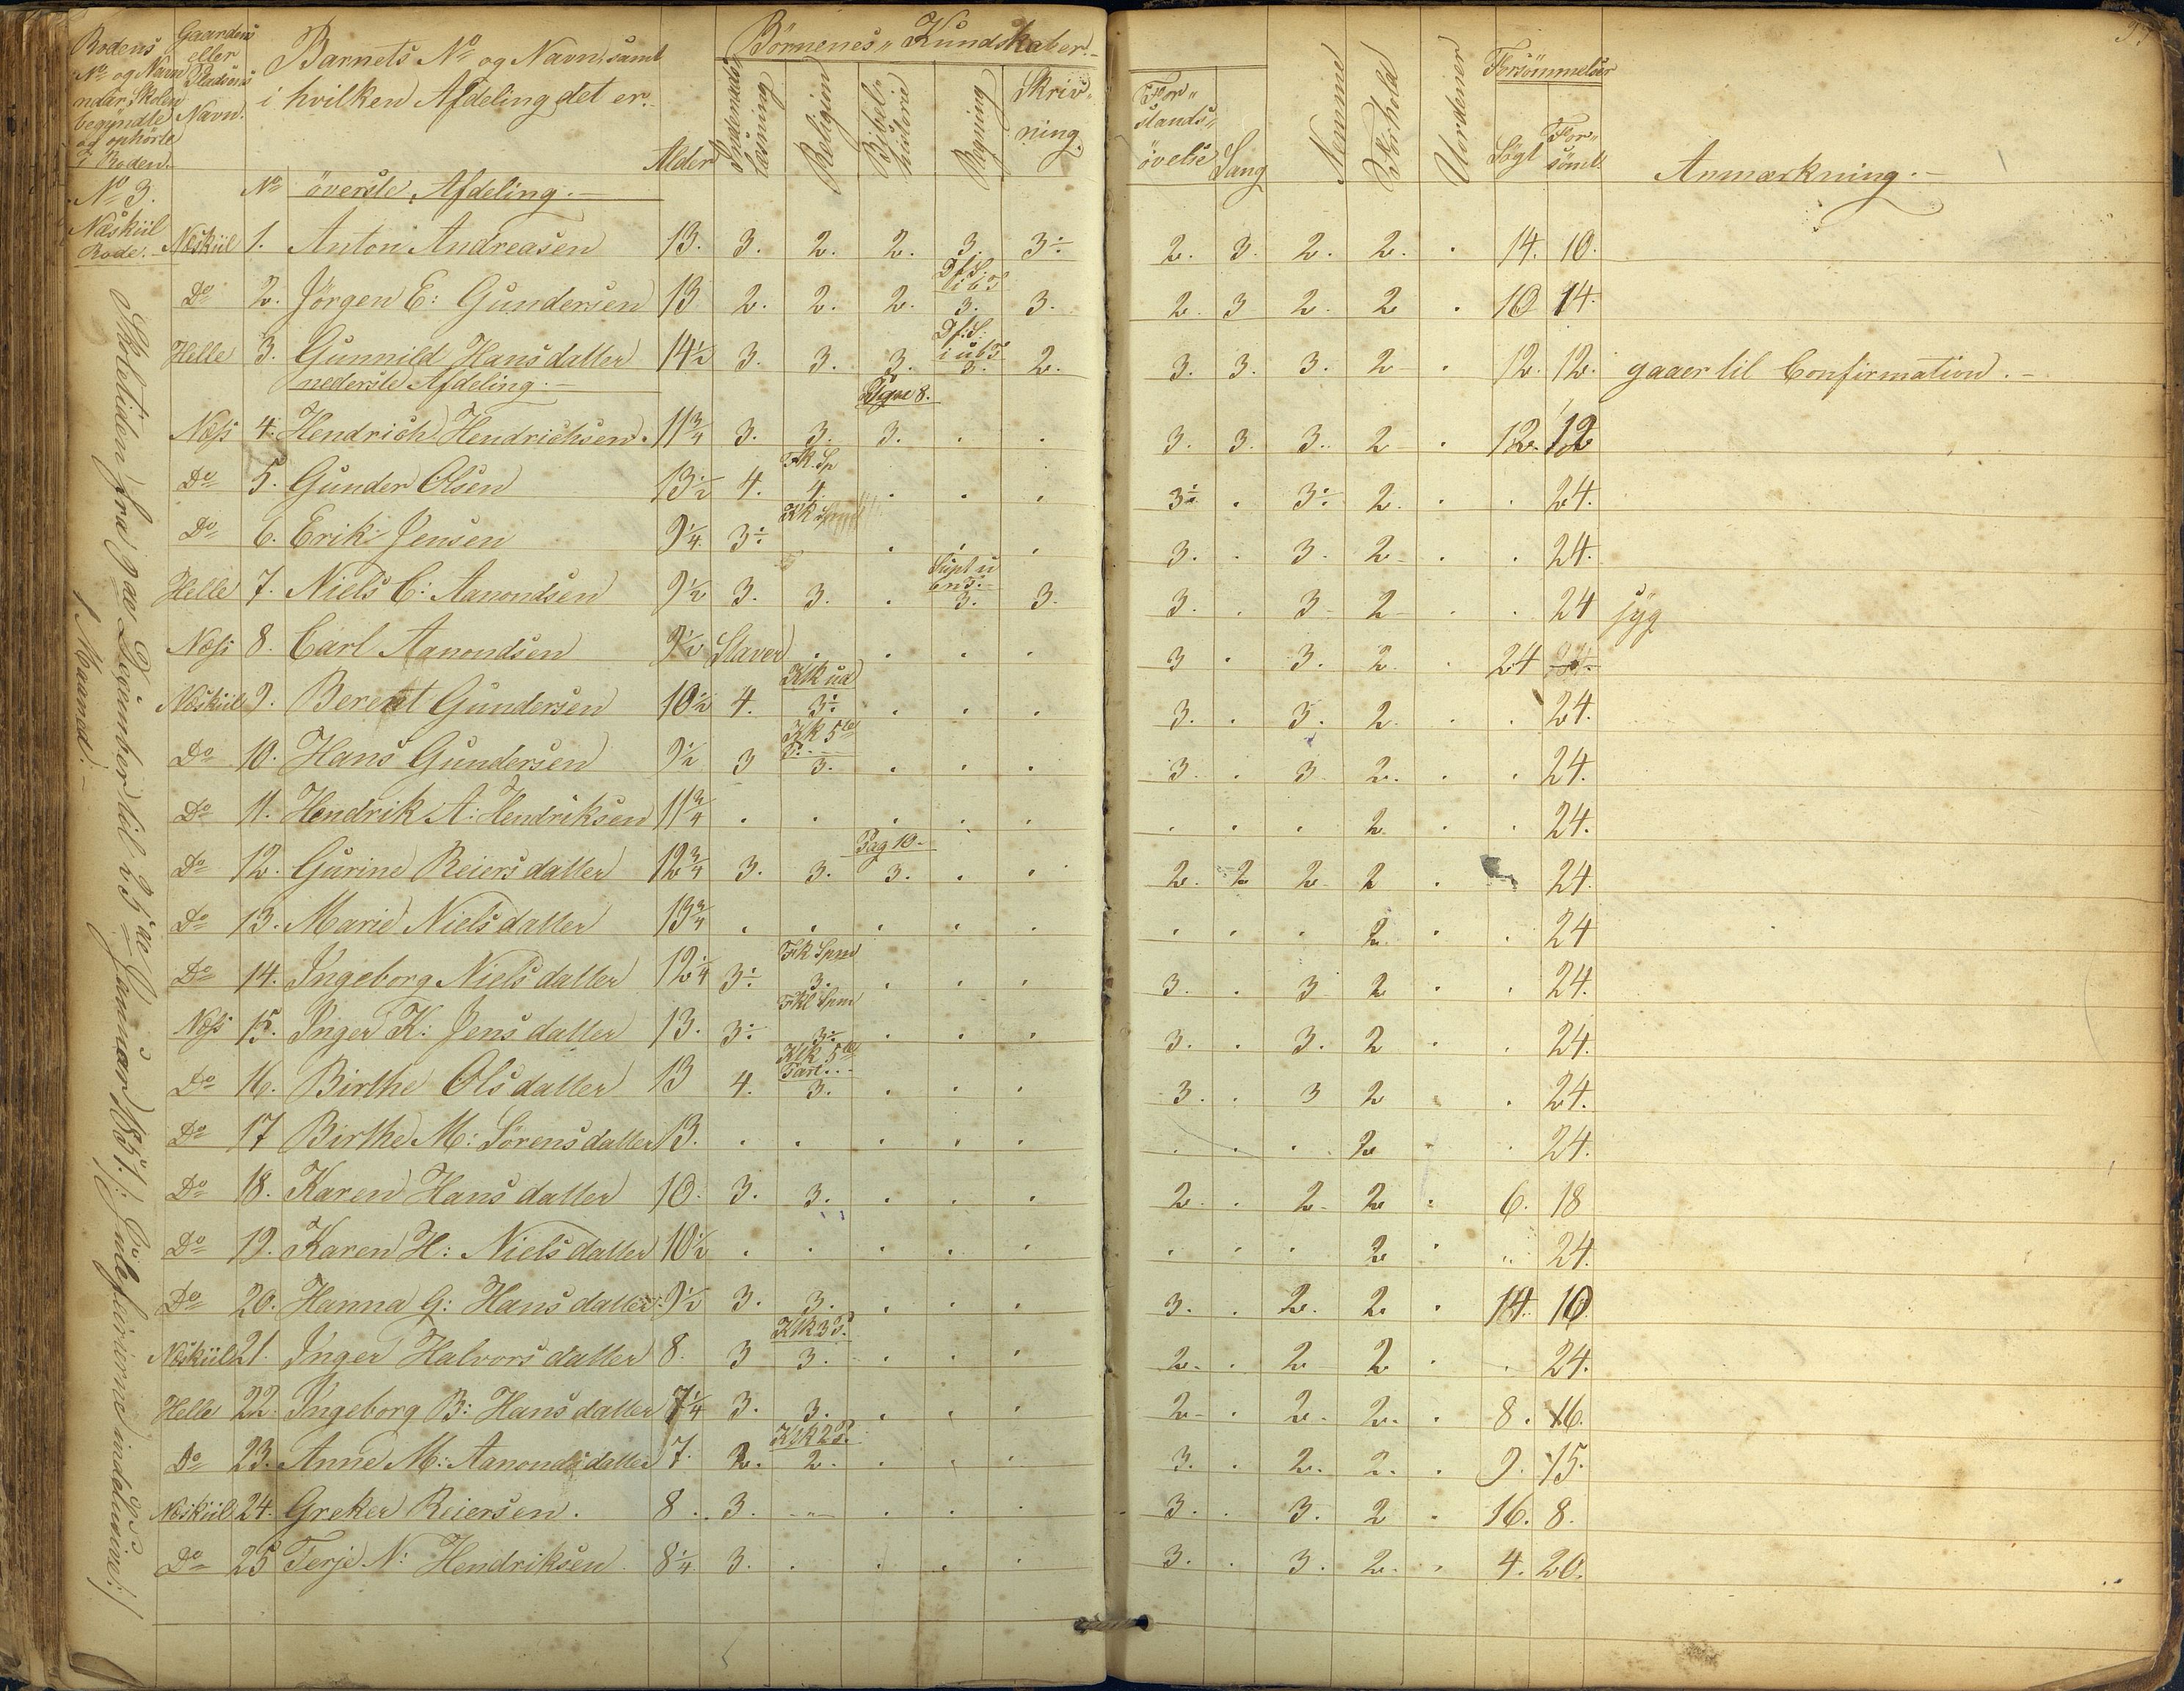 Rodens No og Navn naar Skolen begyndte og ophørte i Roden.
Gaardens eller Pladsens Navn.
Barnets No og Navn, samt i hvilken Afdeling det er.
Alder
Børnenes Kundskaber.
Indenads-læsning
Religion
Bibel-historie
Regning
Skriv-ning.
For-stands-øvelse
Sang
Nemme
Forhold
Uordener
Forsømmelser
Søgt
For-sömt
Anmærkning.
No 3. No øverste Afdeling.
Næskiil Rode. Næskiil 1. Anton Andreasen 13. 3. 2. 2. 3. 3÷ 2. 3. 2. 2. . 14. 10.
Do 2. Jörgen E: Gundersen 13 2. 2. 2. 3. 3. 2. 3 2. 2 . 10 14.
Helle 3. Gunnild Hansdatter 14½ 3. 3. 3. 3. 2. 3. 3. 3. 2 . 12. 12. gaaer til Confirmation.
nederste Afdeling.
Næss 4. Hendrich Hendrichsen. 11¾ 3. 3. 3. . . 3. 3. 3. 2 . 12. 12
Do 5. Gunder Olsen 13½ 4. 4. . . . 3÷ . 3÷ 2. . . 24.
Do 6. Erik Jensen 9¼ 3÷ . . . 3. . 3. 2 . . 24.
Helle 7. Niels C: Aanondsen 9½ 3. 3. . 3. 3. 3. . 3 2 . . 24 syg
Næss 8. Carl Aanondsen 9½ Staver . . . . 3 . 3. 2. . 24
Næskiil 9. Berent Gundersen 10½ 4. Klk ud 3÷ . . . 3. . 3. 2. . . 24.
Do 10. Hans Gundersen 9½ 3 Klk 5te P. 3. . . . 3. . 3. 2. . . 24.
Do 11. Hendrik A: Hendriksen 11¾ . . . . . . . . 2. . . 24.
Do 12. Gurine Reiersdatter 12¾ 3. 3. Pag 10 3. . . 2. 2 2. 2 . 24.
Do 13. Marie Nielsdatter 13¾ . . . . . . . . 2. . . 24
Do 14. Ingeborg Nielsdatter 12¼ 3÷ Fk Spm 3. . . . 3. . 3 2 . . 24.
Næss 15. Inger K: Jensdatter 13. 3÷ Fkl Spm 3÷ . . . 3. . 3. 2 . . 24.
Do 16. Birthe Olsdatter 13 4. Klk 5te Part. 3. . . . 3. . 3 2 . . 24.
Do 17 Birthe M: Sörensdatter 13. . . . . . . . . 2 . 24.
Do 18. Karen Hansdatter 10. 3. 3. . . . 2. . 2. 2 . 6. 18
Do 19. Karen H: Nielsdatter 10½ . . . . . . . . 2 . . 24.
Do 20. Hanna G: Hansdatter 9½ 3. 3. . . . 3. . 2. 2. . 14. 10
Næskiil 21. Inger Halvorsdatter 8. 3 Klk 3 P. 3. . . . 2. . 2 2 . . 24.
Helle 22. Ingeborg B: Hansdatter 7¼ 3. 3. . . . 2 . 2. 2. . 8. 16.
Do 23. Anne M: Aanondsdatter 7. 2. Klk 2 P. 2. . . . 3. . 2. 2. . 9. 15.
Næskiil 24. Greker Reiersen. 8. 3. . . . 3. . 3. 2 . 16. 8.
Do 25 Terje N: Hendriksen. 8¼ 3. . . . . 3. . 3. 2. . 4. 20.
Skoletiden fra 9de December til 25de Januar 1851. /: Juleferierne inclusive :/
1 Maaned.